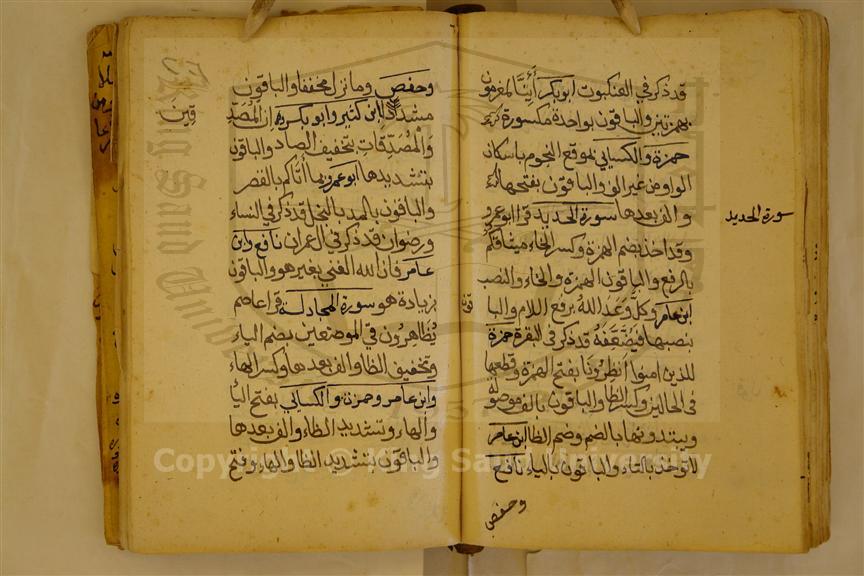 قد ذكر في العنكبوت ابو بكر أَئِنَّا لمغرمون
بهمزتين والباقون بواحدة مكسورة
حمزة والكسائي بموقع النجوم باسكان
الواو من غير الف والباقون بفتحها
والف بعدها سورة الحديد قرا ابو عمرو
وقد اخذ بضم الهمزة وكسر الخاء ميثاقكم
بالرفع والباقون بفتح الهمزة والخاء والنصب
ابن عامر وكلٌّ وعد اللهُ برفع اللام والبا
قون
بنصبها فيضعّفه قد ذكر في البقرة حمزة
للذين امنوا أَنظِرُونا بفتح الهمزة وقطعها
في الحالين وكسر الظا والباقون بالف موصولة
ويبتدونها بالضم وضم الظا ابن عامر
لا توخذ بالتاء والباقون بالياء نافع
وحفص
سورة الحديد
وحفص وما نزل مخففا والباقون
مشددا ابن كثير وابو بكر ان المُصَدِّ
قين
والمُصَدِّقات بتخفيف الصاد والباقون
بتشديدها ابو عمرو بما أتاكم بالقصر
والباقون بالمد بالبخل قد ذكر في النساء
ورضوان قد ذكر في ال عمران نافع وابن
عامر فان الله الغني بغير هو والباقون
بزيادة هو سورة المجادلة قرا عاصم
يُظاهِرُون في الموضعين بضم الياء
وتخفيف الظا والف بعدها وكسر الهاء
وابن عامر وحمزة والكسائي بفتح اليا
والهاء وتشديد الظاء والف بعدها
والباقون بتشديد الظا والهاء وفتح
Copyright © King Saud University